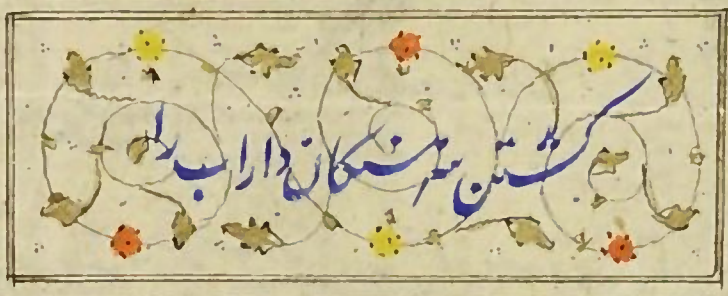 کشتن سرهنکان داراب را